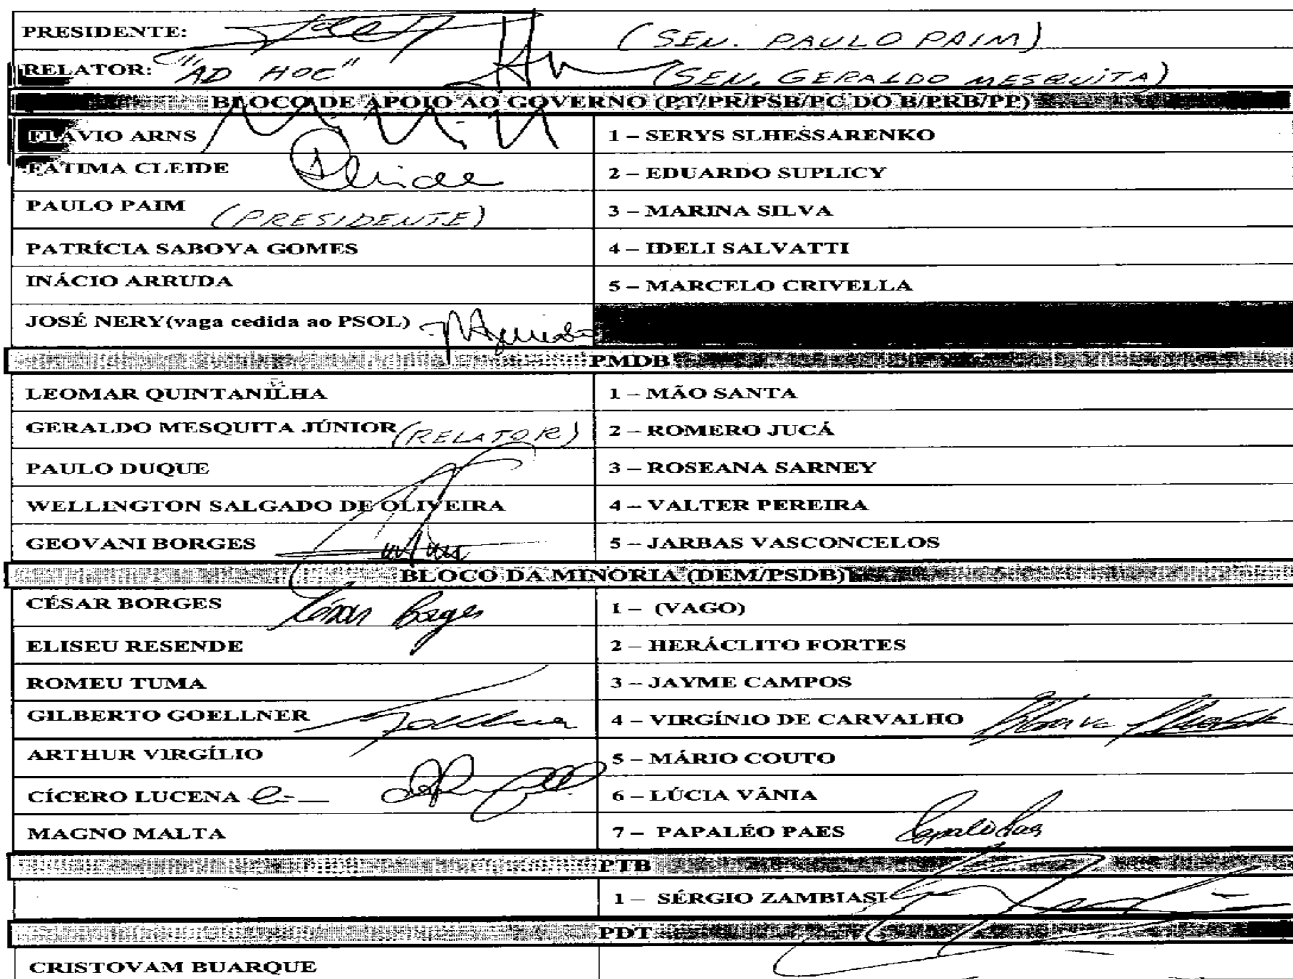 PRESIDENTE: (SEN. PAULO PAIM)
RELATOR: "AD HOC" (SEN. GERALDO MESQUITA)
BLOCO DE APOIO AO GOVERNO (PT/PR/PSB/PC DO B/PRB/PP)
FLÁVIO ARNS 1 – SERYS SLHESSARENKO
FÁTIMA CLEIDE 2 – EDUARDO SUPLICY
PAULO PAIM (PRESIDENTE) 3 – MARINA SILVA
PATRÍCIA SABOYA GOMES 4 – IDELI SALVATTI
INÁCIO ARRUDA 5 – MARCELO CRIVELLA
JOSÉ NERY(vaga cedida ao PSOL)
PMDB
LEOMAR QUINTANILHA 1 – MÃO SANTA
GERALDO MESQUITA JÚNIOR (RELATOR) 2 – ROMERO JUCÁ
PAULO DUQUE 3 – ROSEANA SARNEY
WELLINGTON SALGADO DE OLIVEIRA 4 – VALTER PEREIRA
GEOVANI BORGES 5 – JARBAS VASCONCELOS
BLOCO DA MINORIA (DEM/PSDB)
CÉSAR BORGES César Borges 1 – (VAGO)
ELISEU RESENDE 2 – HERÁCLITO FORTES
ROMEU TUMA 3 – JAYME CAMPOS
GILBERTO GOELLNER 4 – VIRGÍNIO DE CARVALHO
ARTHUR VIRGÍLIO 5 – MÁRIO COUTO
CÍCERO LUCENA 6 – LÚCIA VÂNIA
MAGNO MALTA 7 – PAPALÉO PAES
PTB
1 – SÉRGIO ZAMBIASI
PDT
CRISTOVAM BUARQUE